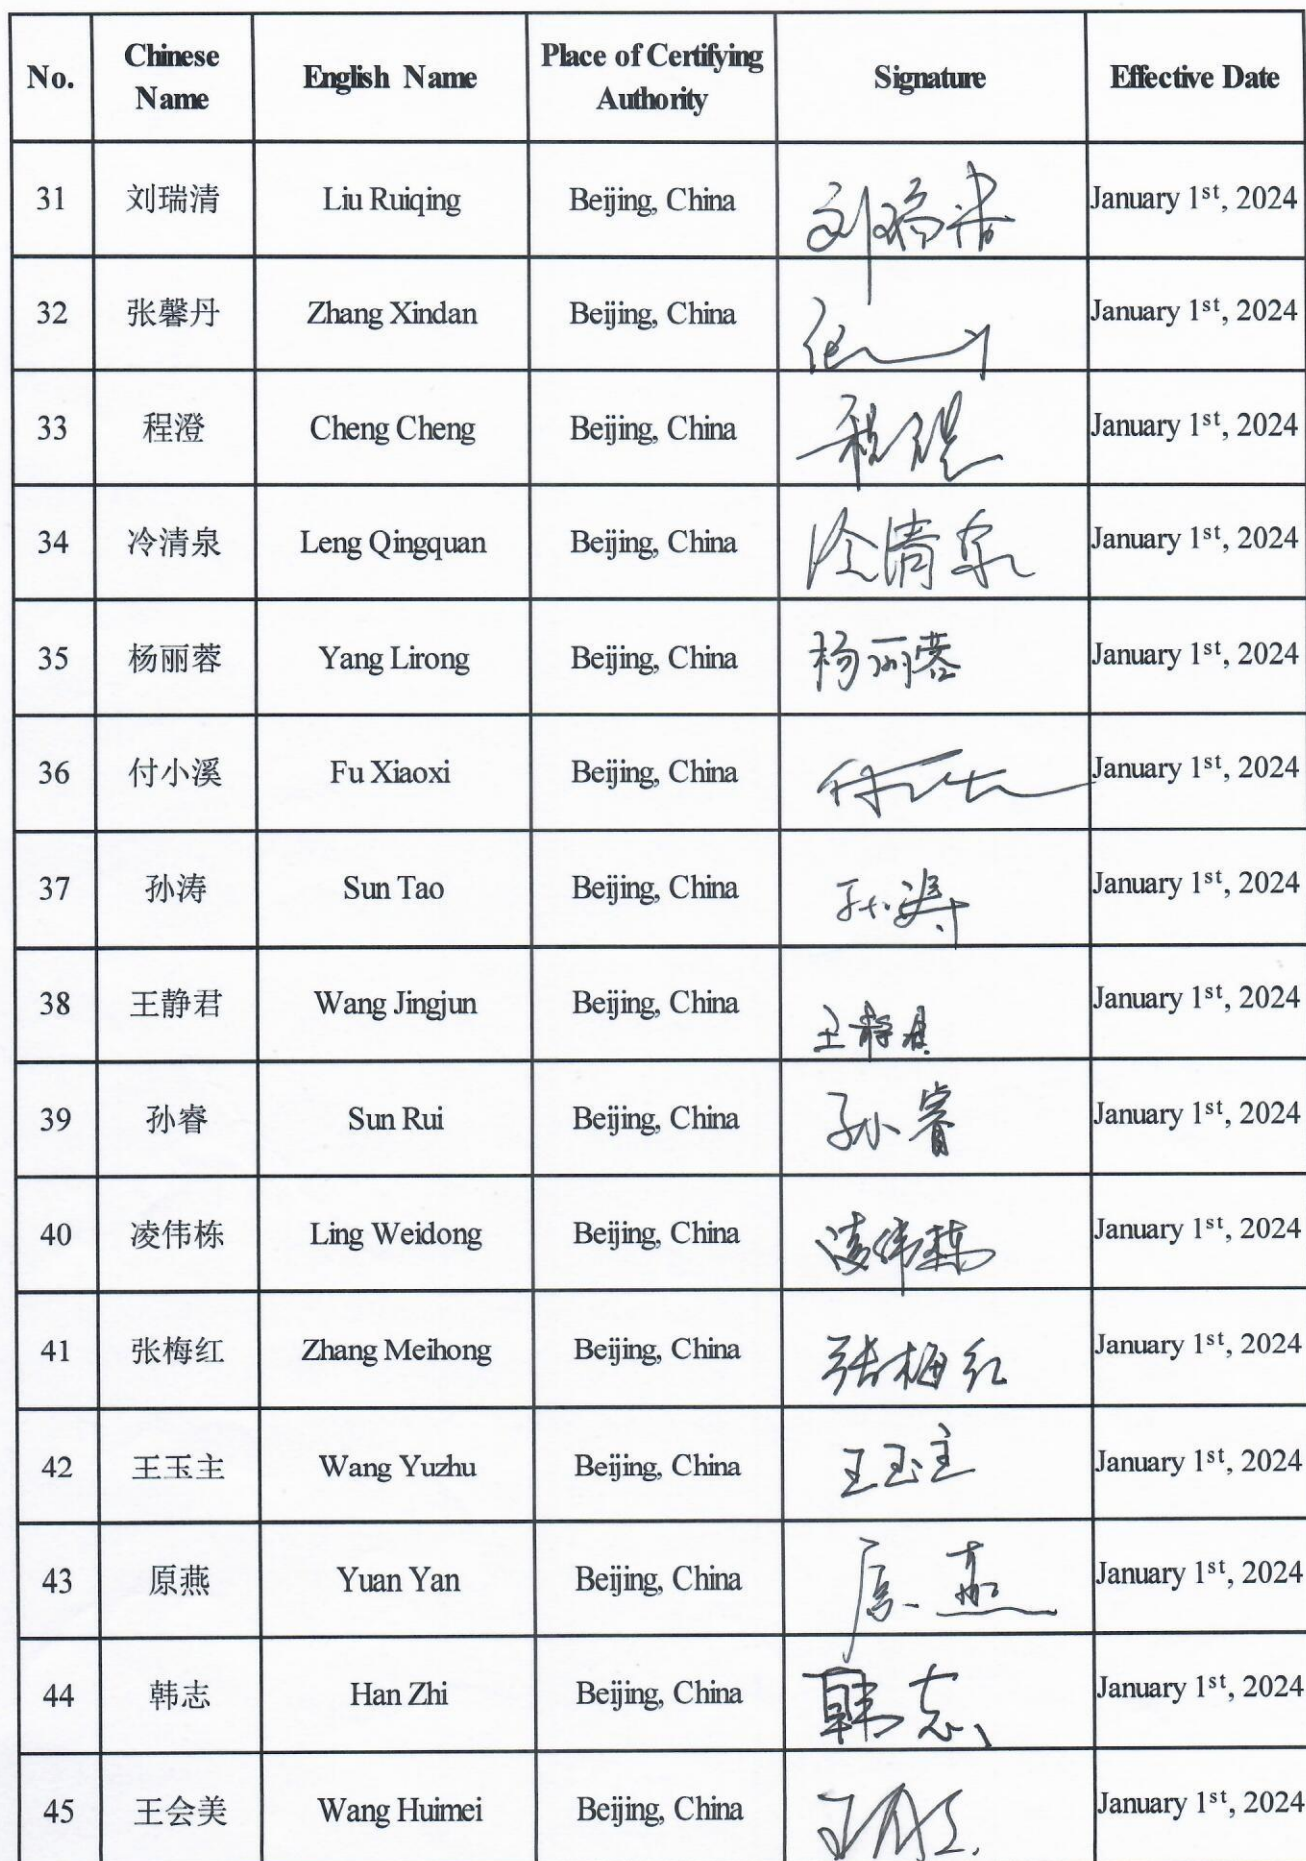 No.
Chinese
Name
English Name
Place of Certifying
Authority
Signature
Effective Date
31 刘瑞清 Liu Ruiqing Beijing, China 刘瑞清 January 1st, 2024
32 张馨丹 Zhang Xindan Beijing, China January 1st, 2024
33 程澄 Cheng Cheng Beijing, China 程澄 January 1st, 2024
34 冷清泉 Leng Qingquan Beijing, China 冷清泉 January 1st, 2024
35 杨丽蓉 Yang Lirong Beijing, China 杨丽蓉 January 1st, 2024
36 付小溪 Fu Xiaoxi Beijing, China January 1st, 2024
37 孙涛 Sun Tao Beijing, China 孙涛 January 1st, 2024
38 王静君 Wang Jingjun Beijing, China 王静君 January 1st, 2024
39 孙睿 Sun Rui Beijing, China 孙睿 January 1st, 2024
40 凌伟栋 Ling Weidong Beijing, China 凌伟栋 January 1st, 2024
41 张梅红 Zhang Meihong Beijing, China 张梅红 January 1st, 2024
42 王玉主 Wang Yuzhu Beijing, China 王玉主 January 1st, 2024
43 原燕 Yuan Yan Beijing, China 原燕 January 1st, 2024
44 韩志 Han Zhi Beijing, China 韩志 January 1st, 2024
45 王会美 Wang Huimei Beijing, China January 1st, 2024